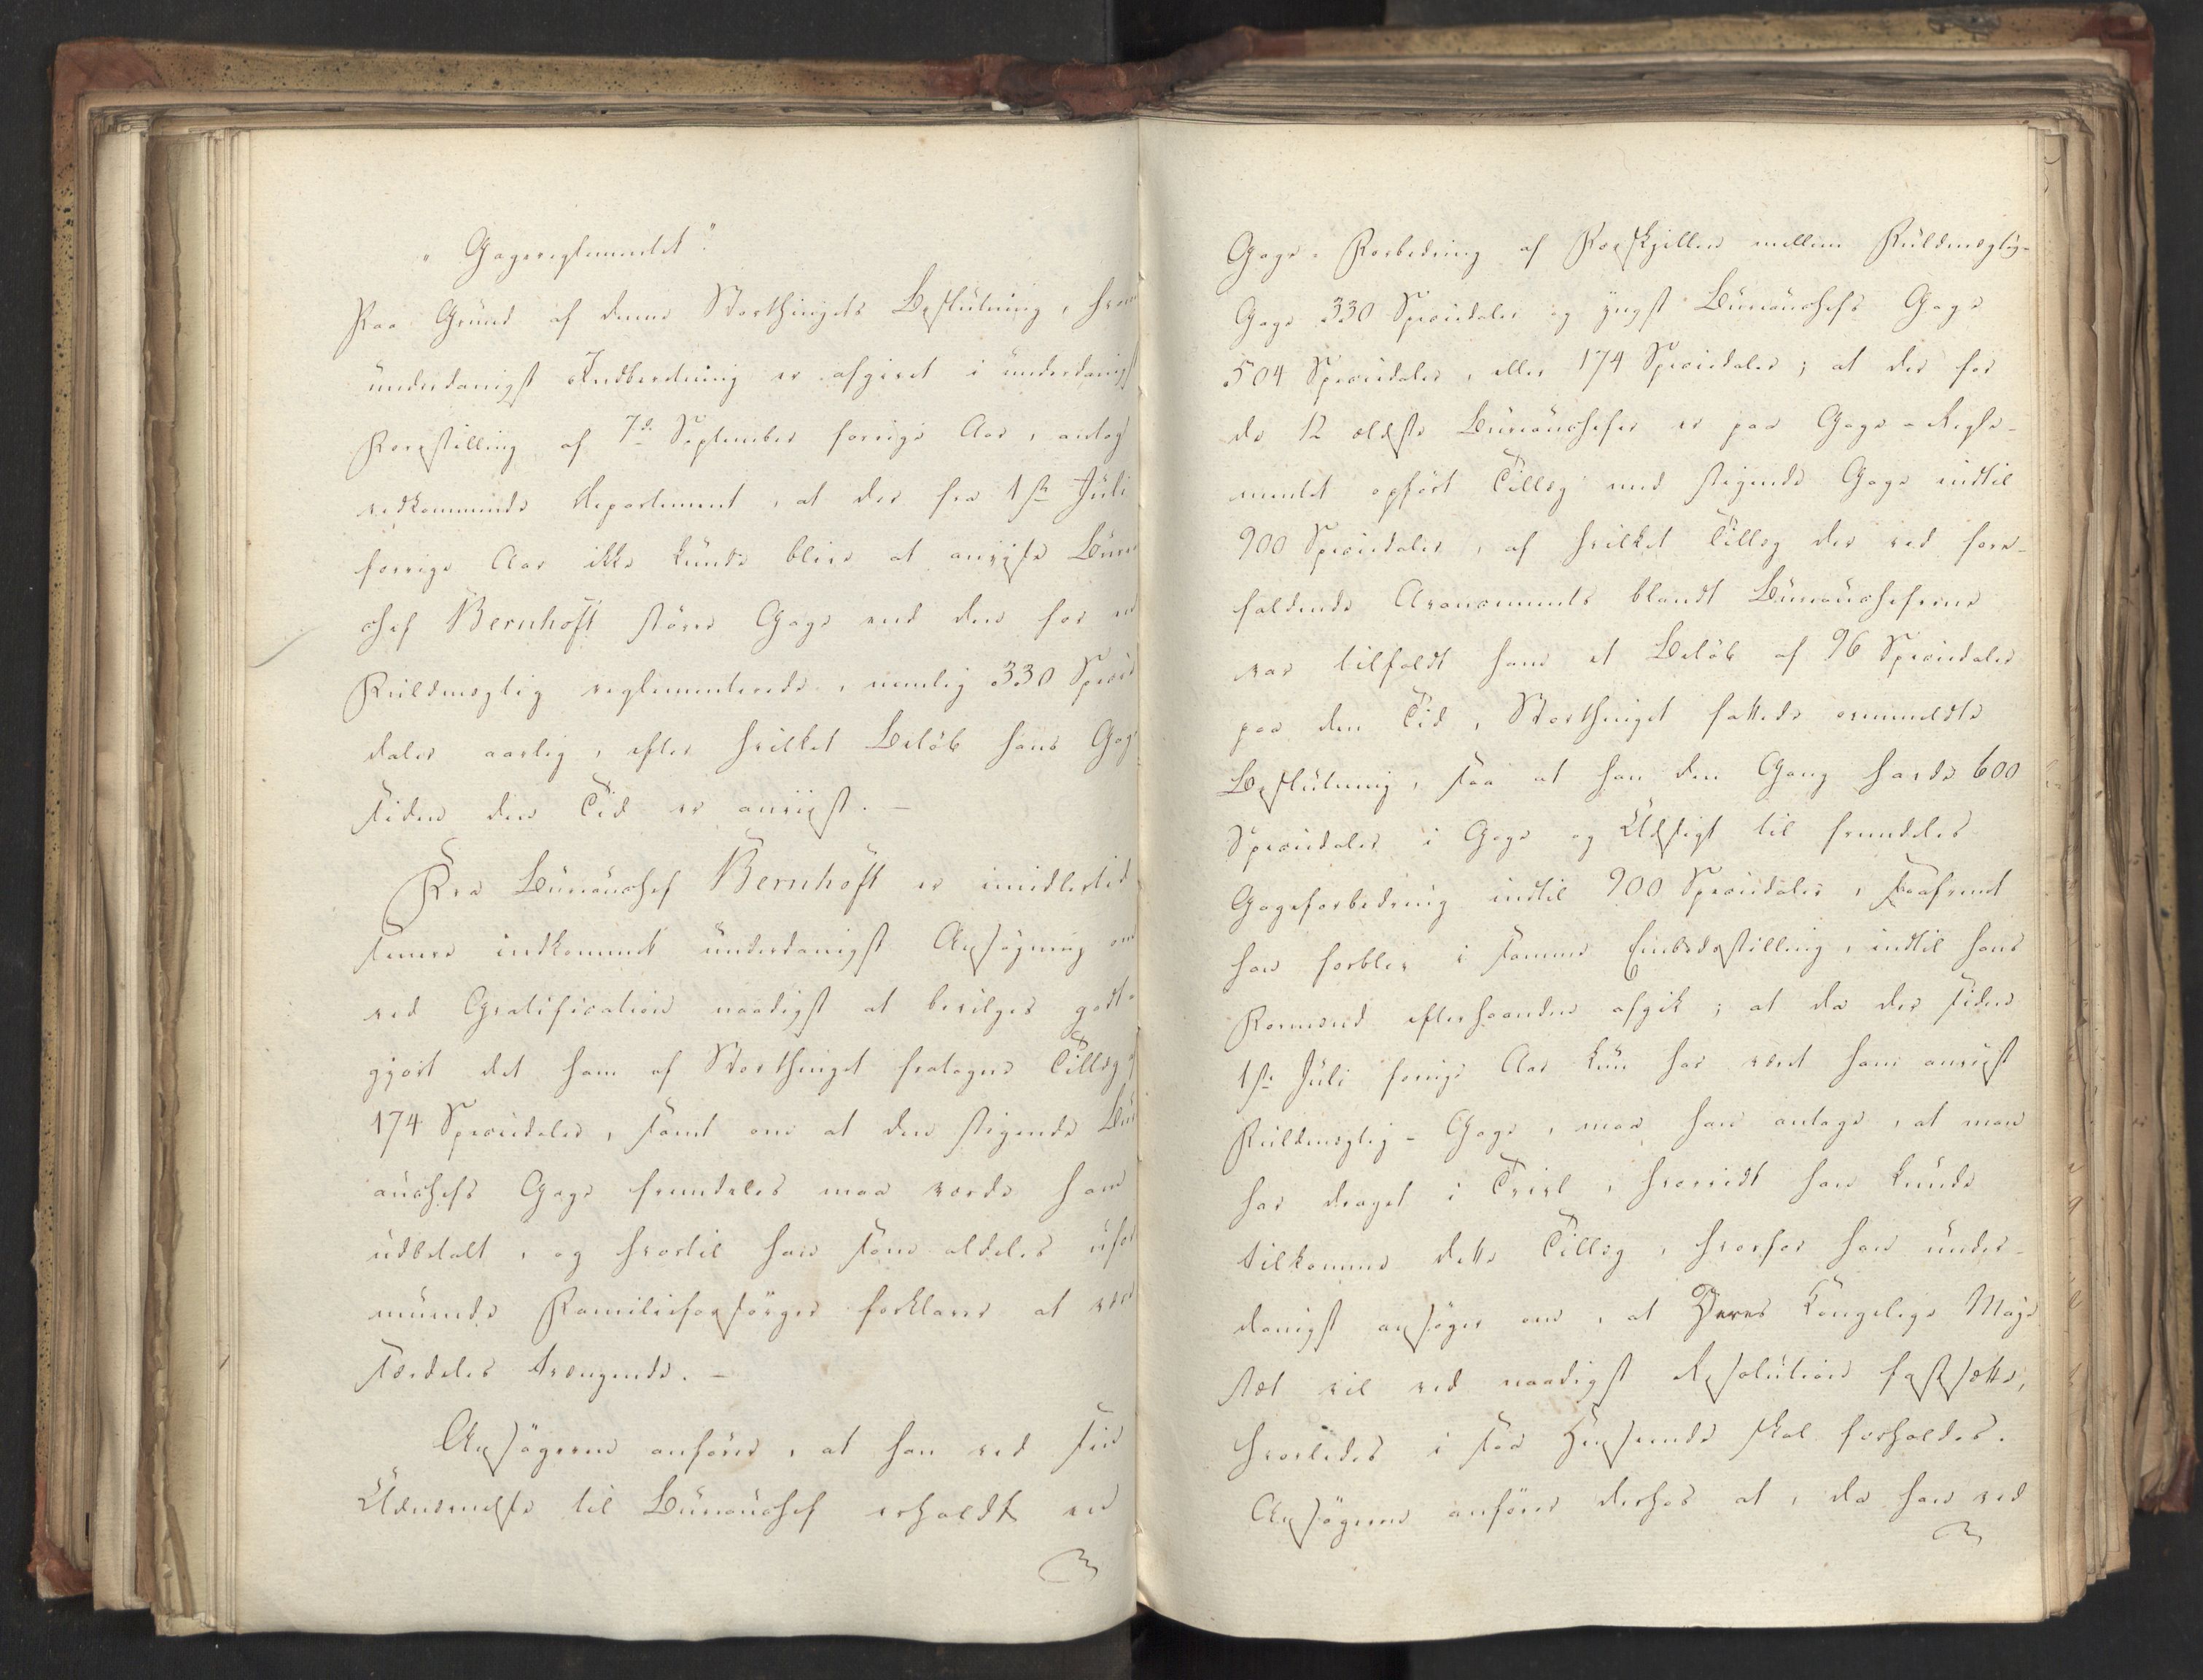 "Gagereglementet".
Paa Grund af denne Storthingets Beslutning, hvorom
underdanigst Indberetning er afgivet i underdanigst
Forestilling af 7de September forrige Aar, antog
vedkommende Departement, at der fra 1ste Juli
forrige Aar ikke kunde blive at anvise Bureau
chef Bernhoft större Gage end den for en
Fuldmægtig reglementerede, nemlig 330 Specie
daler aarlig, efter hvilket Belöb hans Gage
siden den Tid er anviist. –
Fra Bureauchef Bernhoft er imidlertid
senere indkommet underdanigst Ansögning om
ved Gratification naadigst at bevilges godt-
gjort det ham af Storthinget fratagne Tillæg af
174 Speciedaler, samt om at den stigende Bure
auchefs Gage fremdeles maa vorde ham
udbetalt, og hvortil han som aldeles ufor
muende Familieforsörger forklarer at være
særdeles trængende. –
Ansögeren anförer, at han ved sin
Udnævnelse til Bureauchef erholdt en
Gage-Forbedring af Forskjellen mellem Fuldmægtig-
Gage 330 Speciedaler og yngst Bureauchefs Gage
504 Speciedaler, eller 174 Speciedaler; at der for
de 12 ældste Bureauchefer er paa Gage-Regle-
mentet opfört Tillæg med stigende Gage indtil
900 Speciedaler, af hvilket Tillæg der ved fore-
faldende Avancements blandt Bureaucheferne
var tilfaldt ham et Belöb af 96 Speciedaler
paa den Tid, Storthinget fattede ovenmeldte
Beslutning, saa at han den Gang havde 600
Speciedaler i Gage og Udsigt til fremdeles
Gageforbedring indtil 900 Speciedaler, saafremt
han forblev i samme Embedsstilling, indtil hans
Formænd efterhaanden afgik; at da der siden
1ste Juli forrige Aar kun har været ham anviist
Fuldmægtig-Gage, maa han antage, at man
har draget i Tvivl, hvorvidt han kunde
tilkomme dette Tillæg, hvorfor han under-
danigst ansöger om, at Deres Kongelige Maje
stæt vil ved naadigst Resolution fastsætte,
hvorledes i saa Henseende skal forholdes.
Ansögeren anförer derhos at, da han ved